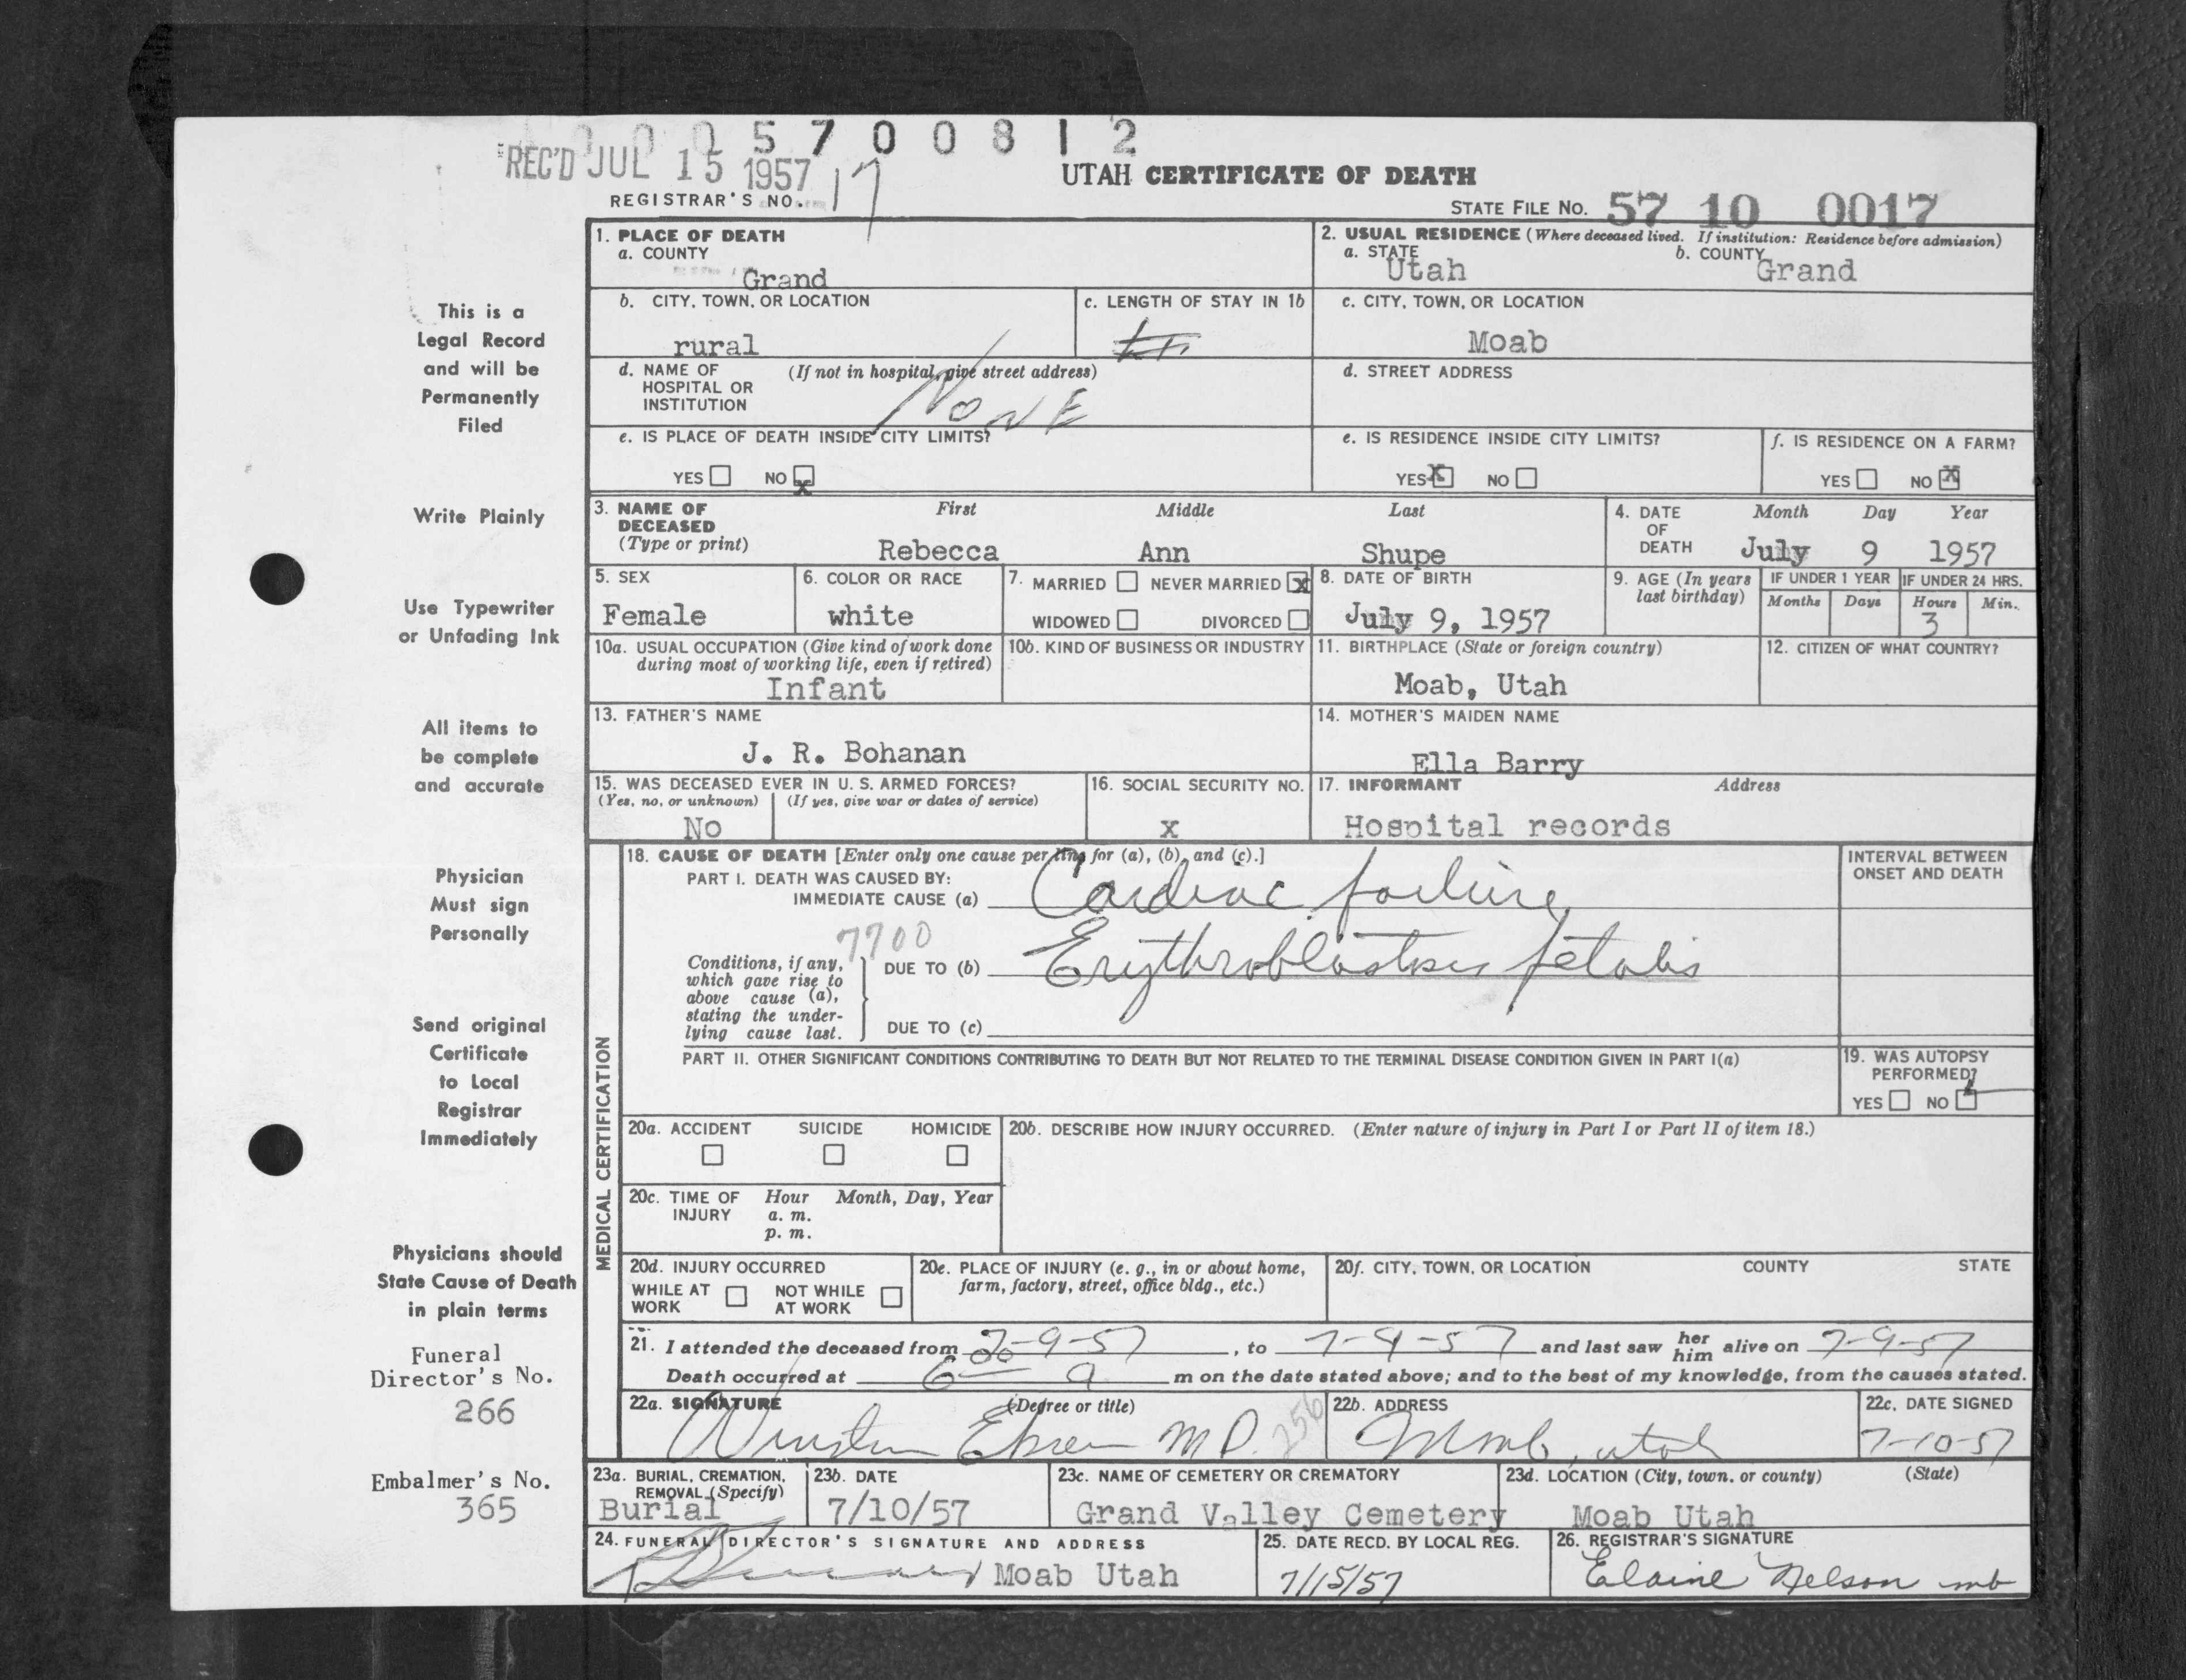 0 0 0 5 7 0 0 8 1 2
REC'D JUL 15 1957
UTAH CERTIFICATE OF DEATH
REGISTRAR'S NO. 17
STATE FILE NO. 57 10 0017
1. PLACE OF DEATH
a. COUNTY
Grand
2. USUAL RESIDENCE (Where deceased lived. If institution: Residence before admission)
a. STATE b. COUNTY
Utah Grand
b. CITY, TOWN, OR LOCATION
rural
c. LENGTH OF STAY IN 1b
c. CITY, TOWN, OR LOCATION
Moab
d. NAME OF HOSPITAL OR INSTITUTION (If not in hospital, give street address)
NONE
d. STREET ADDRESS
e. IS PLACE OF DEATH INSIDE CITY LIMITS?
YES NO X
e. IS RESIDENCE INSIDE CITY LIMITS?
YES X NO
f. IS RESIDENCE ON A FARM?
YES NO X
3. NAME OF DECEASED (Type or print)
First Middle Last
Rebecca Ann Shupe
4. DATE OF DEATH
Month Day Year
July 9 1957
5. SEX
Female
6. COLOR OR RACE
white
7. MARRIED NEVER MARRIED X
WIDOWED DIVORCED
8. DATE OF BIRTH
July 9, 1957
9. AGE (In years last birthday)
IF UNDER 1 YEAR
Months Days
IF UNDER 24 HRS.
Hours Min.
3
10a. USUAL OCCUPATION (Give kind of work done during most of working life, even if retired)
Infant
10b. KIND OF BUSINESS OR INDUSTRY
11. BIRTHPLACE (State or foreign country)
Moab, Utah
12. CITIZEN OF WHAT COUNTRY?
13. FATHER'S NAME
J. R. Bohanan
14. MOTHER'S MAIDEN NAME
Ella Barry
15. WAS DECEASED EVER IN U. S. ARMED FORCES?
(Yes, no, or unknown) (If yes, give war or dates of service)
No
16. SOCIAL SECURITY NO.
x
17. INFORMANT Address
Hospital records
MEDICAL CERTIFICATION
18. CAUSE OF DEATH [Enter only one cause per line for (a), (b), and (c).]
PART I. DEATH WAS CAUSED BY:
IMMEDIATE CAUSE (a) Cardiac failure
7700
Conditions, if any, which gave rise to above cause (a), stating the underlying cause last.
DUE TO (b) Erythroblastosis fetalis
DUE TO (c)
INTERVAL BETWEEN ONSET AND DEATH
PART II. OTHER SIGNIFICANT CONDITIONS CONTRIBUTING TO DEATH BUT NOT RELATED TO THE TERMINAL DISEASE CONDITION GIVEN IN PART I(a)
19. WAS AUTOPSY PERFORMED?
YES NO
20a. ACCIDENT SUICIDE HOMICIDE
20b. DESCRIBE HOW INJURY OCCURRED. (Enter nature of injury in Part I or Part II of item 18.)
20c. TIME OF INJURY Hour Month, Day, Year
a. m.
p. m.
20d. INJURY OCCURRED
WHILE AT WORK NOT WHILE AT WORK
20e. PLACE OF INJURY (e. g., in or about home, farm, factory, street, office bldg., etc.)
20f. CITY, TOWN, OR LOCATION COUNTY STATE
21. I attended the deceased from 7-9-57, to 7-9-57 and last saw her him alive on 7-9-57
Death occurred at 6 00 a m on the date stated above; and to the best of my knowledge, from the causes stated.
22a. SIGNATURE (Degree or title)
Winston Ekren M D. 256
22b. ADDRESS
Moab, Utah
22c. DATE SIGNED
7-10-57
23a. BURIAL, CREMATION, REMOVAL (Specify)
Burial
23b. DATE
7/10/57
23c. NAME OF CEMETERY OR CREMATORY
Grand Valley Cemetery
23d. LOCATION (City, town, or county) (State)
Moab Utah
24. FUNERAL DIRECTOR'S SIGNATURE AND ADDRESS
Moab Utah
25. DATE RECD. BY LOCAL REG.
7/15/57
26. REGISTRAR'S SIGNATURE
Elaine Nelson mb
This is a
Legal Record
and will be
Permanently
Filed
Write Plainly
Use Typewriter
or Unfading Ink
All items to
be complete
and accurate
Physician
Must sign
Personally
Send original
Certificate
to Local
Registrar
Immediately
Physicians should
State Cause of Death
in plain terms
Funeral
Director's No.
266
Embalmer's No.
365